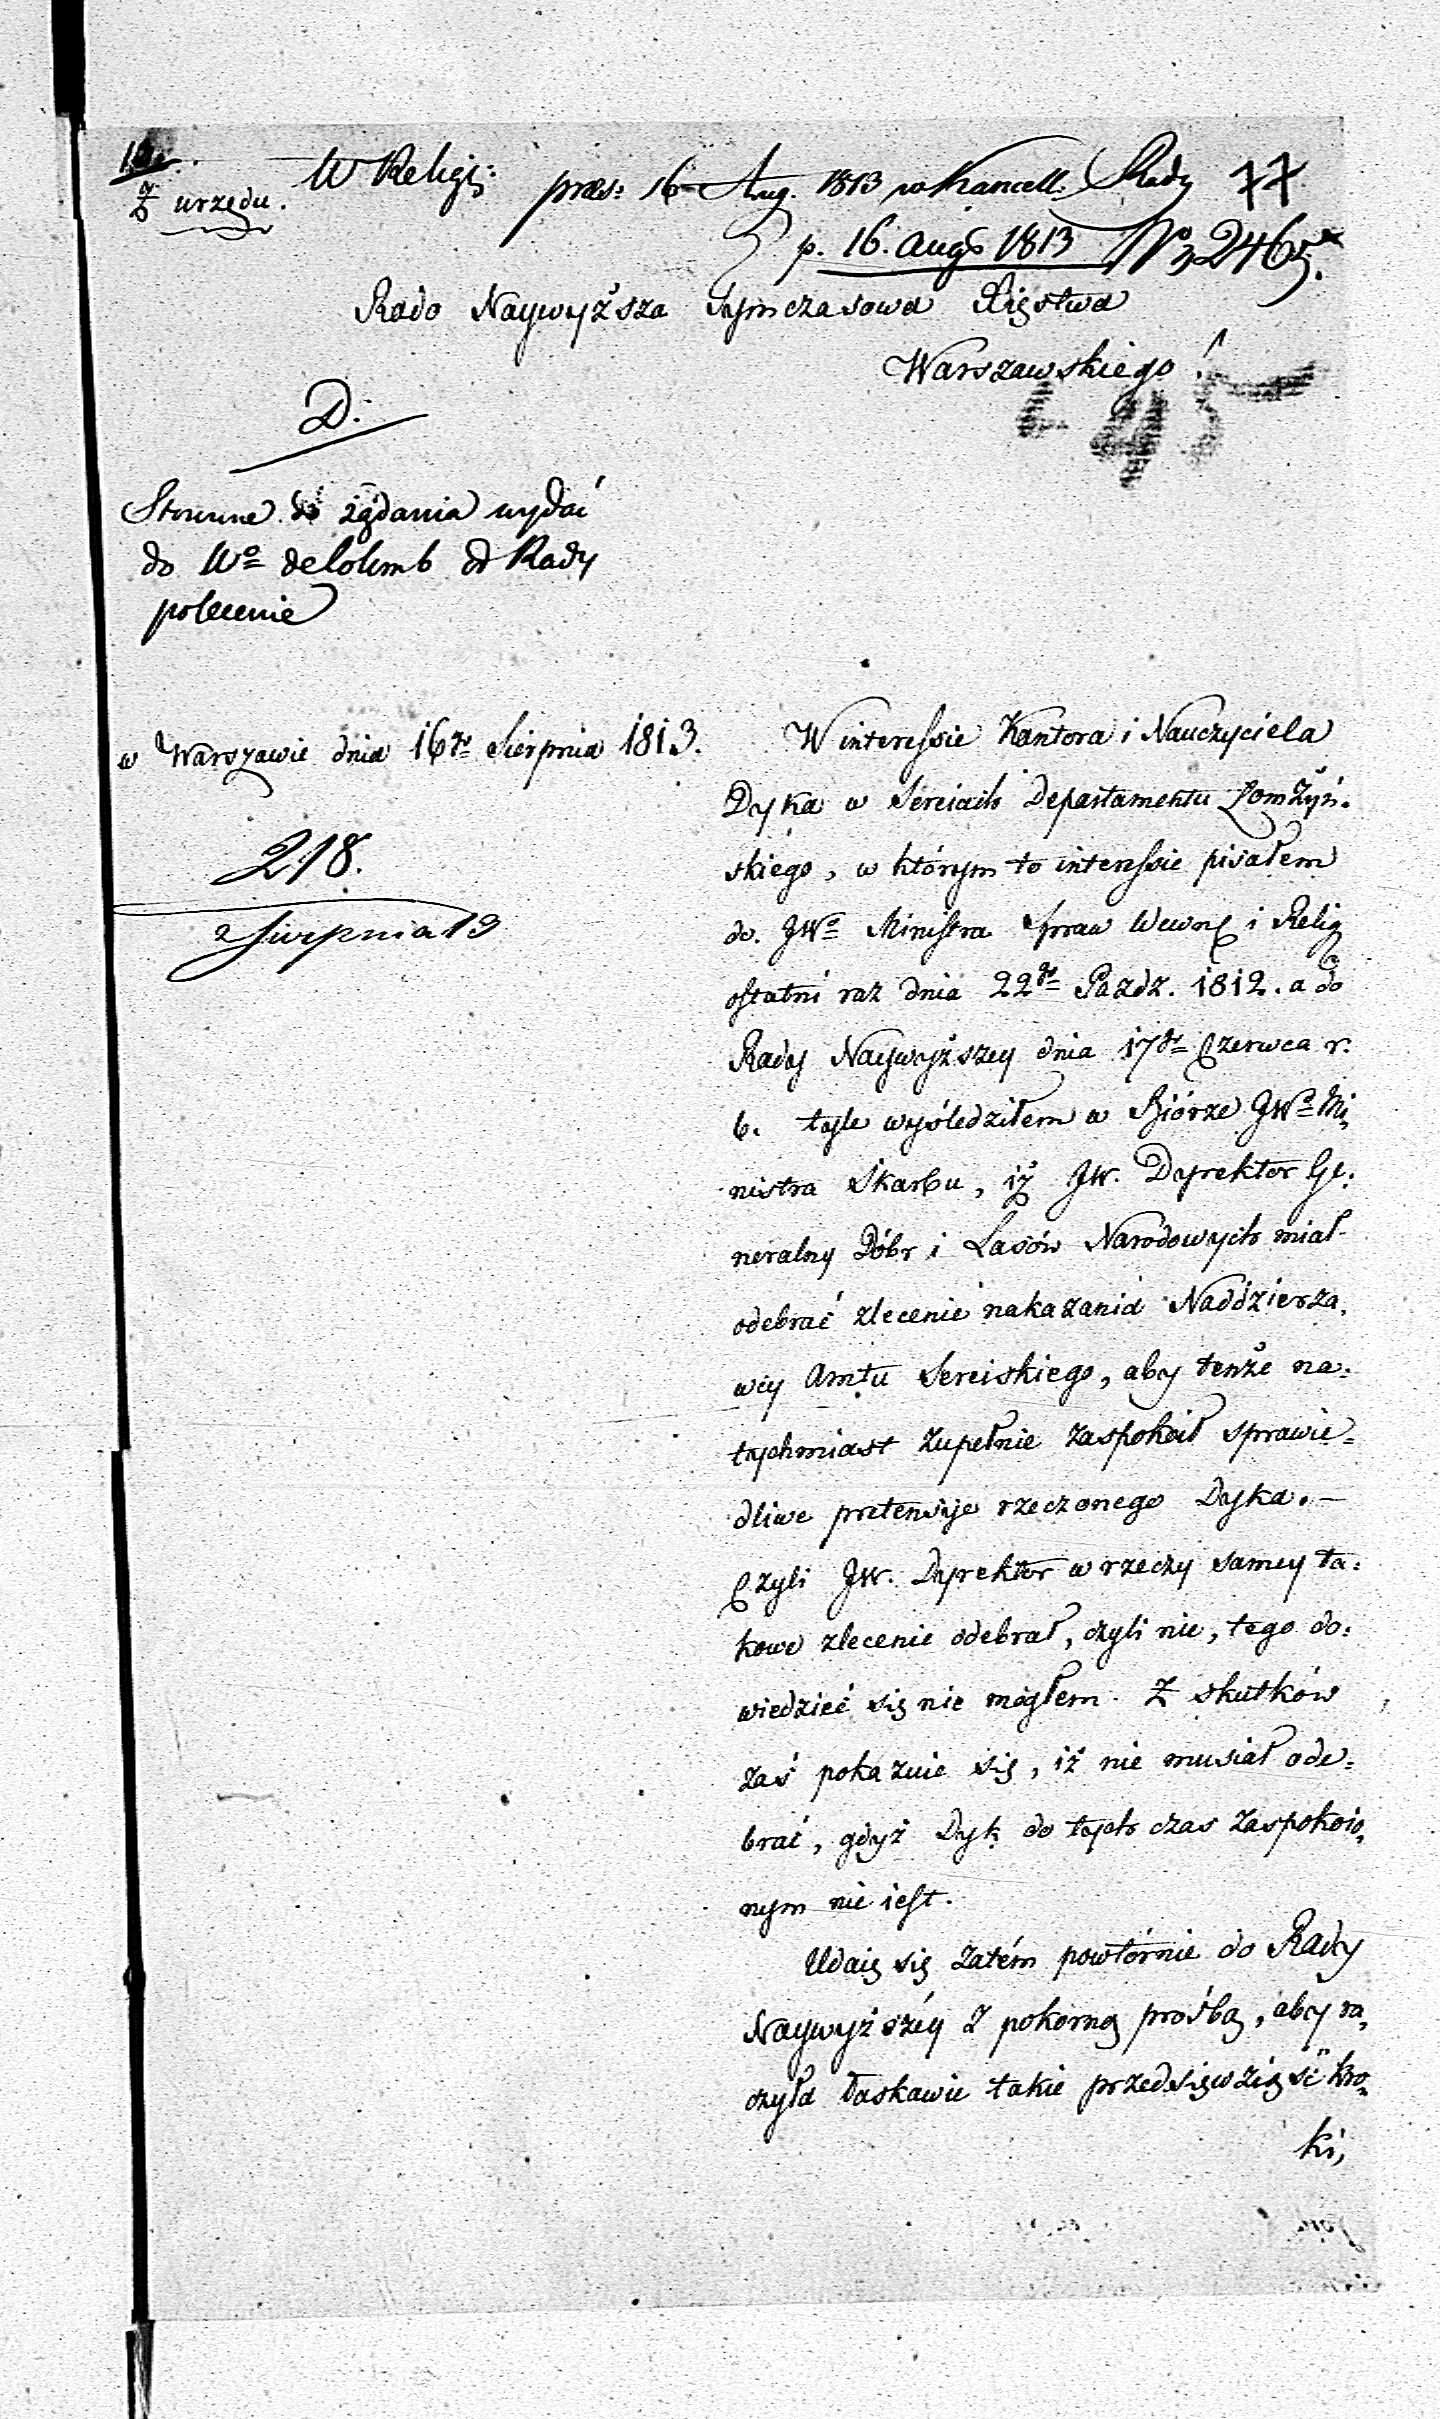 Z urzędu.
W Relig:
præs: 16 Aug. 1813 w Kancell. Rady
77
p. 16. Aug 1813 No 2465.
Rado Naywyższa Tymczasowa Xięstwa
Warszawskiego!
D.
Stosowne do żądania wydać
do Wo de Colomb od Rady
polecenie
w Warszawie dnia 16go Sierpnia 1813.
218.
Sierpnia 13
W interessie Kantora i Nauczyciela
Dyka w Sereiach Departamentu Łomżyń-
skiego, w którym to interessie pisałem
do JWo Ministra Spraw Wewnę i Relig
ostatni raz dnia 22go Pazdz. 1812. a do
Rady Naywyższey dnia 17go Czerwca r.
b. tyle wyśledziłem w Biórze JWo Mi,
nistra Skarbu, iż JW. Dyrektor Ge:
neralny Dóbr i Lasów Narodowych miał
odebrać zlecenie nakazania Naddzierża,
wcy Amtu Sereiskiego, aby tenże na:
tychmiast zupełnie zaspokoił sprawie=
dliwe pretensye rzeczonego Dyka. —
Czyli JW. Dyrektor w rzeczy samey ta:
kowe zlecenie odebrał, czyli nie, tego do:
wiedzieć się nie mogłem. Z skutków
zaś pokazuie się, iż nie musiał ode=
brać, gdyż Dyk do tych czas zaspokoio,
nym nie iest.
Udaię się zatém powtórnie do Rady
Naywyższéy z pokorną prośbą, aby ra,
czyła łaskawie takie przedsięwziąść kro,
ki,